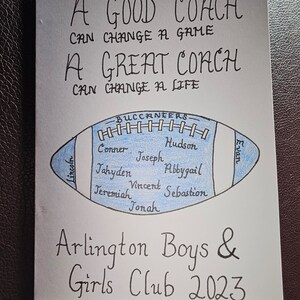 A GOOD COACH
CAN CHANGE A GAME
A GREAT COACH
CAN CHANGE A LIFE
BUCCANEERS
Conner Hudson
Joseph
Jahyden Abbygail
Vincent
Jeremiah Sebastion
Jonah
Lincoln
Evan
Arlington Boys &
Girls Club 2023